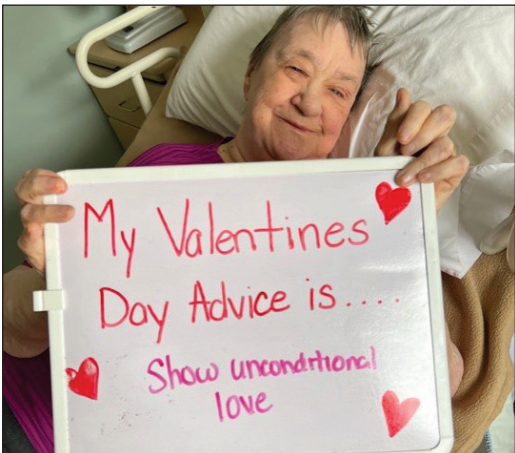 My Valentines
Day Advice is....
Show unconditional
love